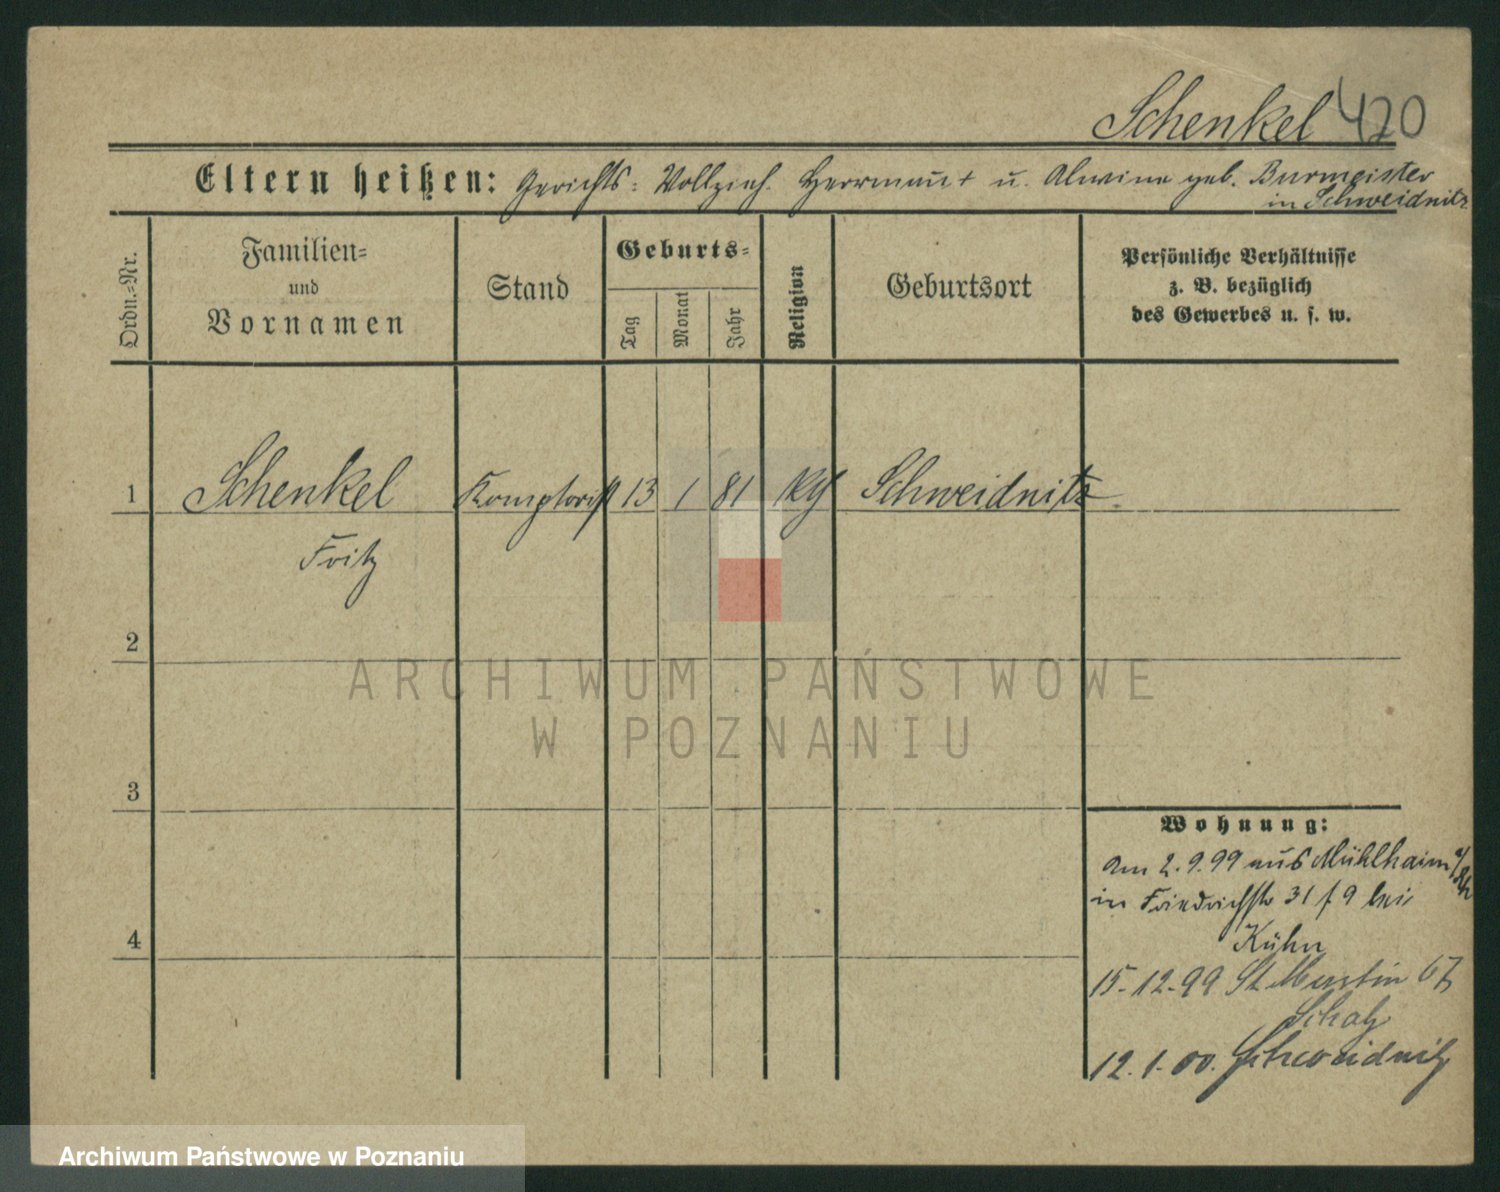 Schenkel 420
Eltern heißen: Gerichts-Vollzieh. Herrmann † u. Alwine geb. Burmeister
in Schweidnitz
Ordn.-Nr.
Familien-
und
Vornamen
Stand
Geburts-
Tag
Monat
Jahr
Religion
Geburtsort
Persönliche Verhältnisse
z. B. bezüglich
des Gewerbes u. s. w.
1 Schenkel Komptorist 13 1 81 Schweidnitz
Fritz
2
3
4
Wohnung:
Am 2.9.99 aus Mühlheim a/Rh
in Friedrichstr 31 f 9 bei
Kühn
15.12.99 St. Martin 67
12.1.00. Schweidnitz
ARCHIWUM PAŃSTWOWE
W POZNANIU
Archiwum Państwowe w Poznaniu